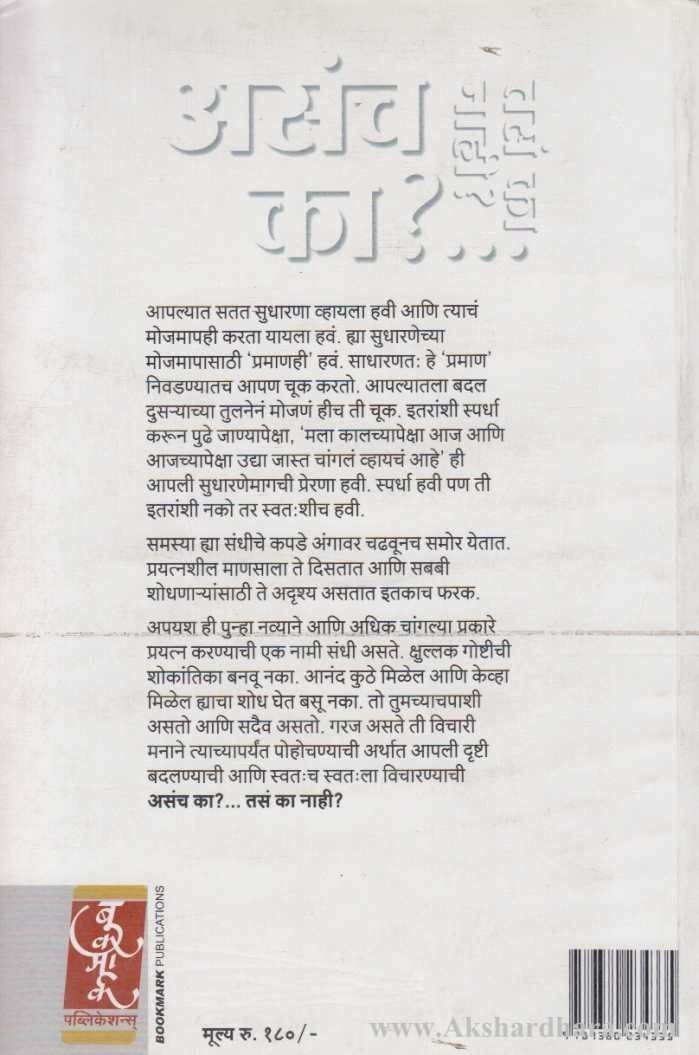 असंच
का?...
तसं का
नाही?
आपल्यात सतत सुधारणा व्हायला हवी आणि त्याचं
मोजमापही करता यायला हवं. ह्या सुधारणेच्या
मोजमापासाठी ‘प्रमाणही’ हवं. साधारणतः हे ‘प्रमाण’
निवडण्यातच आपण चूक करतो. आपल्यातला बदल
दुसऱ्याच्या तुलनेनं मोजणं हीच ती चूक. इतरांशी स्पर्धा
करून पुढे जाण्यापेक्षा, ‘मला कालच्यापेक्षा आज आणि
आजच्यापेक्षा उद्या जास्त चांगलं व्हायचं आहे’ ही
आपली सुधारणेमागची प्रेरणा हवी. स्पर्धा हवी पण ती
इतरांशी नको तर स्वतःशीच हवी.
समस्या ह्या संधीचे कपडे अंगावर चढवूनच समोर येतात.
प्रयत्नशील माणसाला ते दिसतात आणि सबबी
शोधणाऱ्यांसाठी ते अदृश्य असतात इतकाच फरक.
अपयश ही पुन्हा नव्याने आणि अधिक चांगल्या प्रकारे
प्रयत्न करण्याची एक नामी संधी असते. क्षुल्लक गोष्टीची
शोकांतिका बनवू नका. आनंद कुठे मिळेल आणि केव्हा
मिळेल ह्याचा शोध घेत बसू नका. तो तुमच्याचपाशी
असतो आणि सदैव असतो. गरज असते ती विचारी
मनाने त्याच्यापर्यंत पोहोचण्याची अर्थात आपली दृष्टी
बदलण्याची आणि स्वतःच स्वतःला विचारण्याची
असंच का?... तसं का नाही?
बुकमार्क
पब्लिकेशन्स्
BOOKMARK PUBLICATIONS
मूल्य रु. १८०/-
www.Akshardhara.com